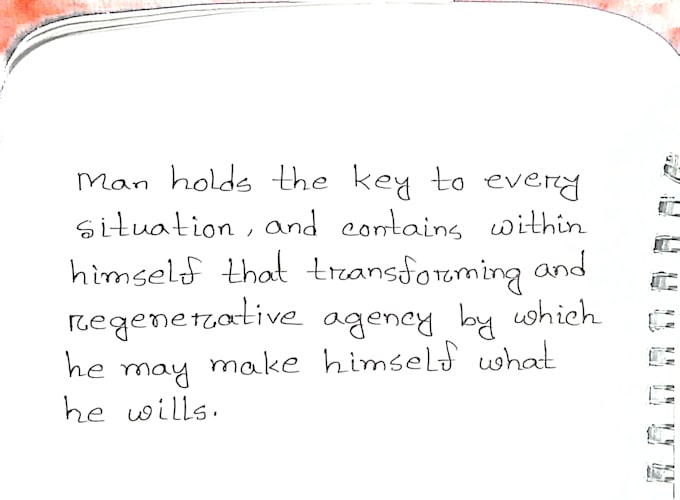 Man holds the key to every
situation, and contains within
himself that transforming and
regenerative agency by which
he may make himself what
he wills.